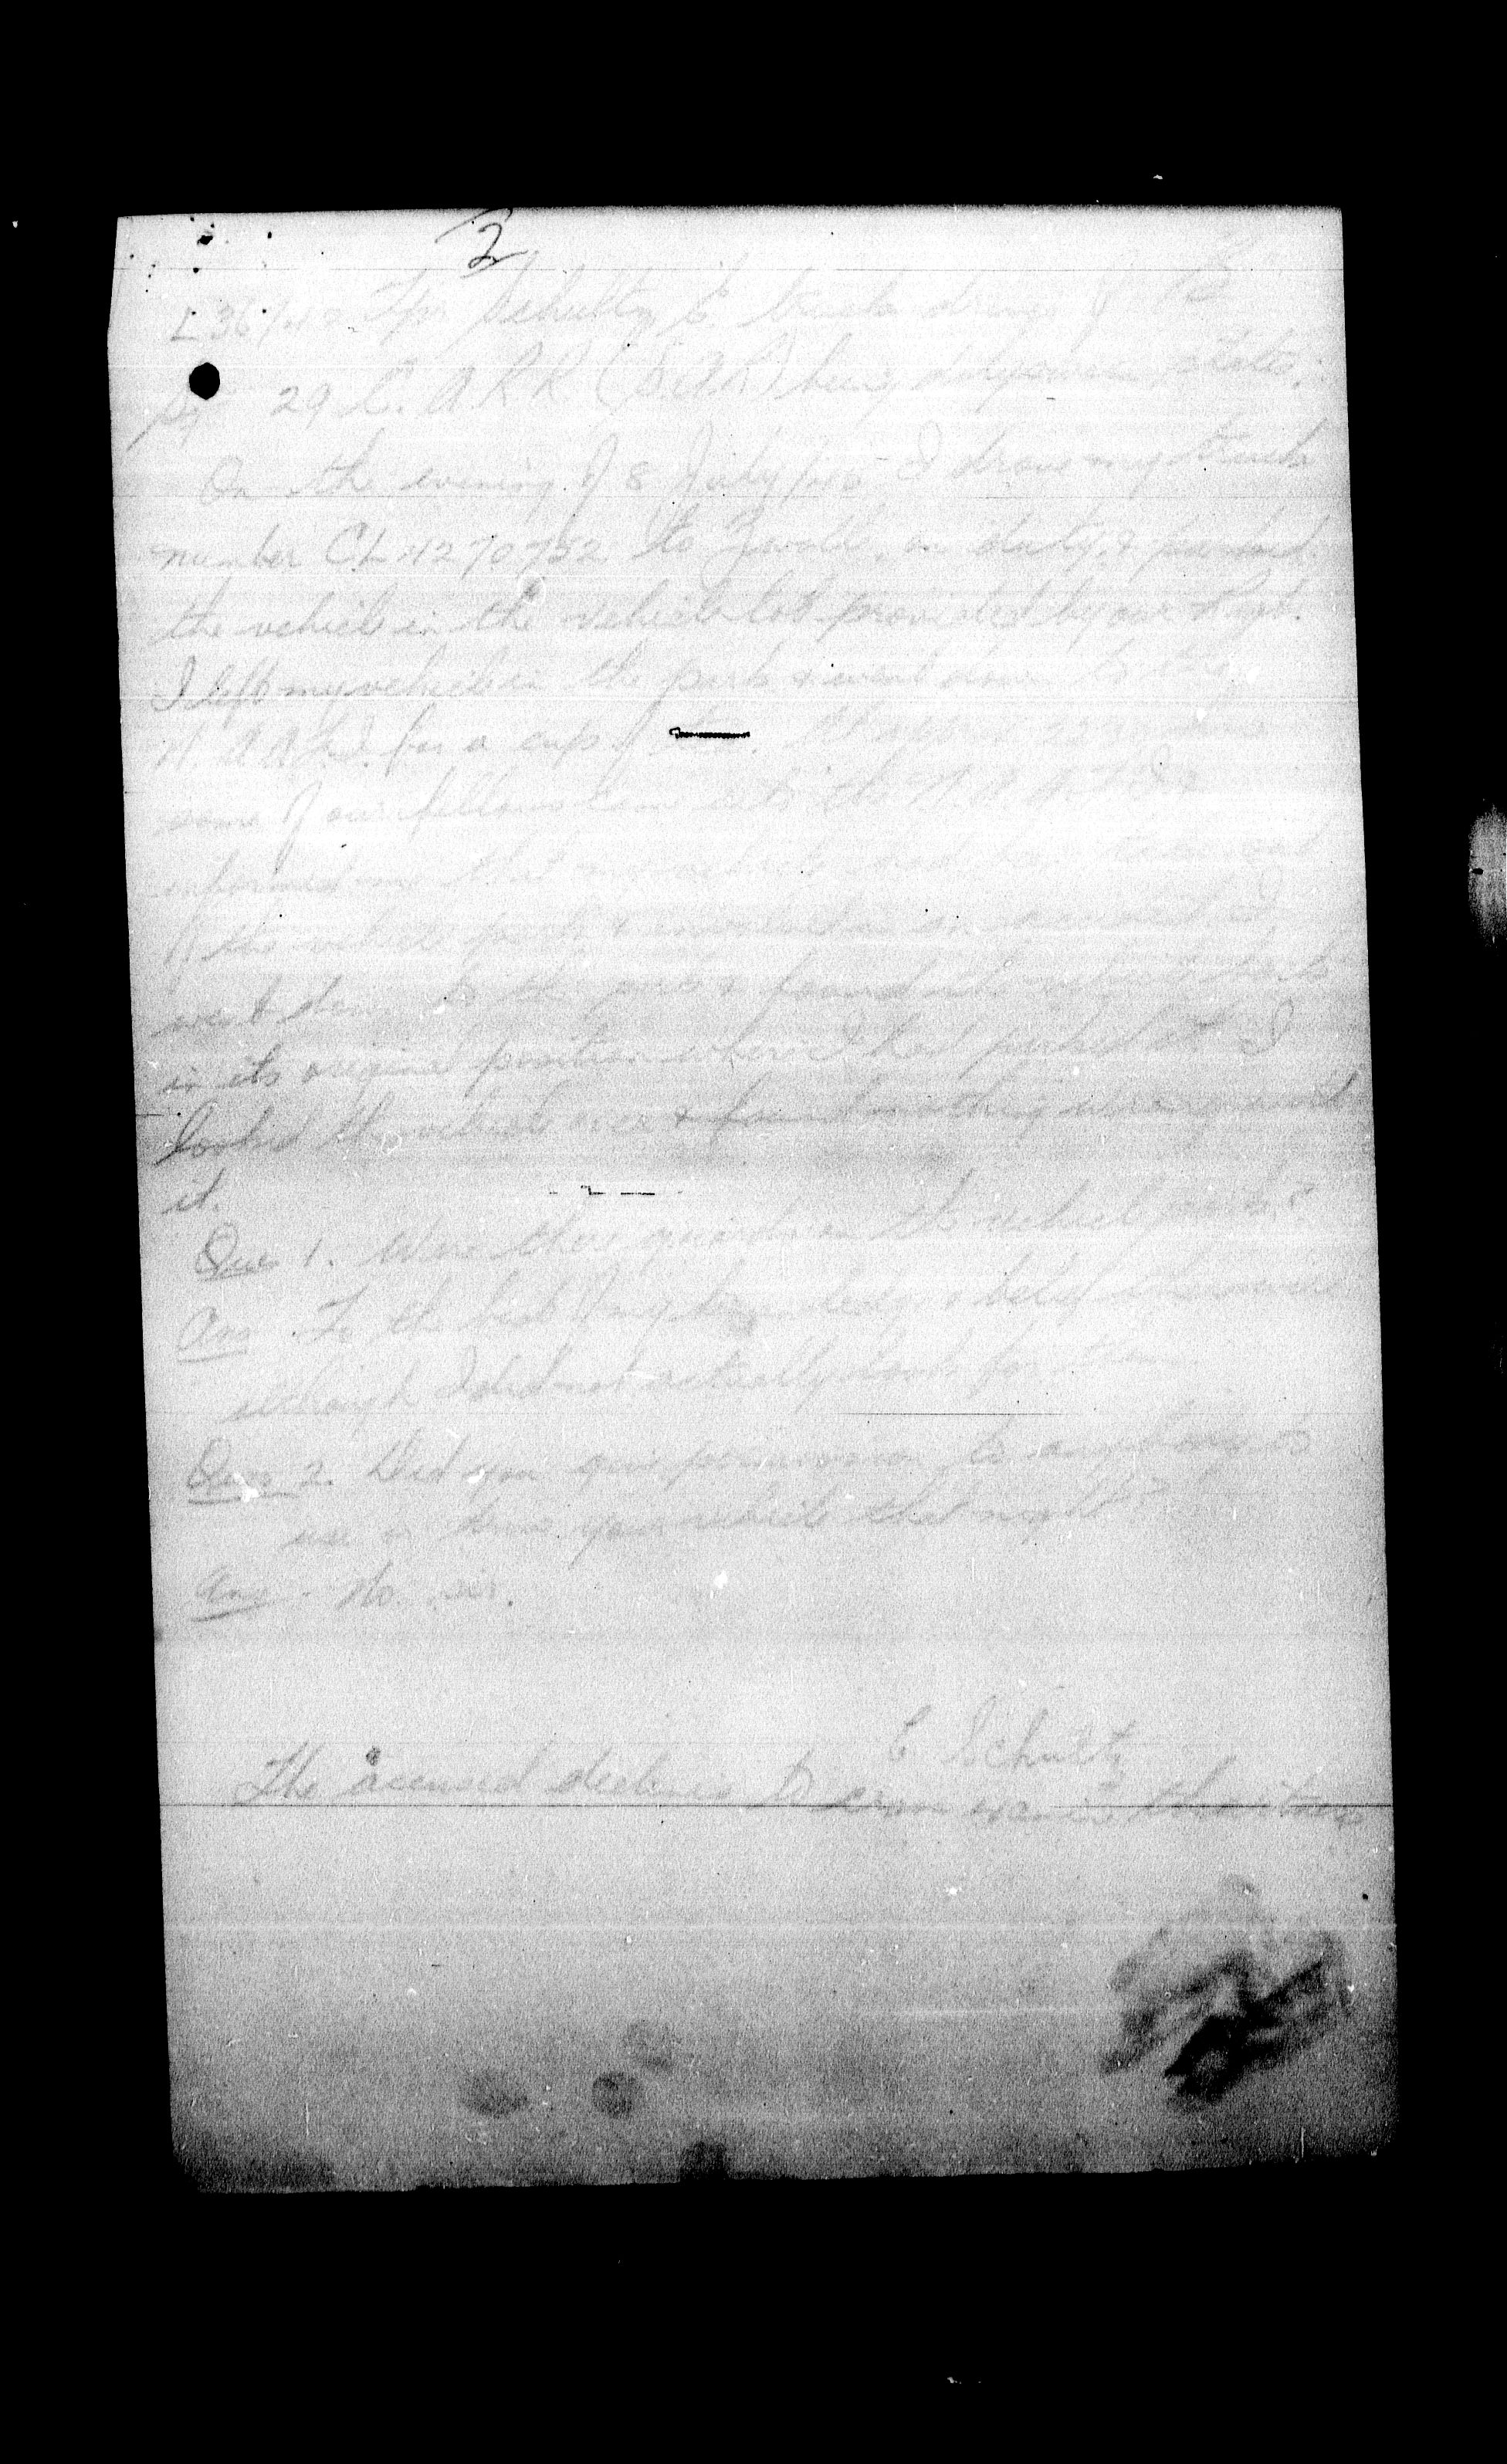 2
Tpr Schultz C. truck driver of
29 C. A R R (S.A.R) being duly sworn, states:
On the evening of 8 July/45 I drove my truck
number CL 4270752 to Zwolle, on duty, & parked
the vehicle in the vehicle lot provided by our Regt.
I left my vehicle in the park & went down to the
N.A.A.F.I. for a cup of tea. At approx 22
some of our fellows came into the N.A.A.F.I &
informed me that my vehicle had been taken out
of the vehicle park & involved in an accident. I
went down to the park & found the vehicle back
in its original position where I had parked it. I
looked the vehicle over & found nothing wrong with
it.
Ques 1. Were there guards on the vehicle park?
Ans. To the best of my knowledge & belief there were
although I did not actually look for them.
Ques 2. Did you give permission to anybody to
use or drive your vehicle that night?
Ans - No sir.
C Schultz
The accused declines to cross examine